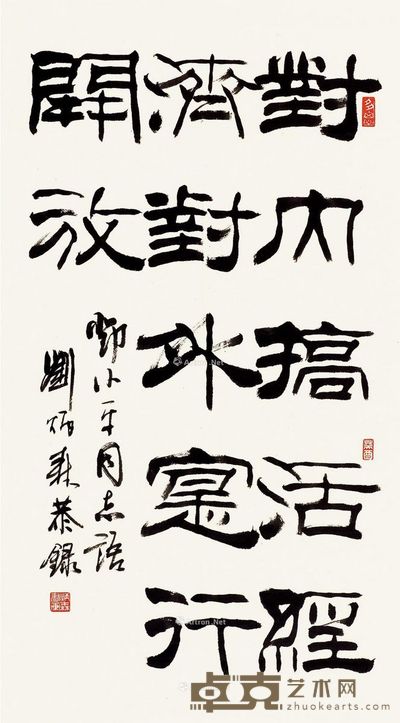 對内搞活經
濟對外寔行
開放
鄧小平同志語
劉炳森恭錄
Artron.Net
卓克艺术网
zhuokearts.com